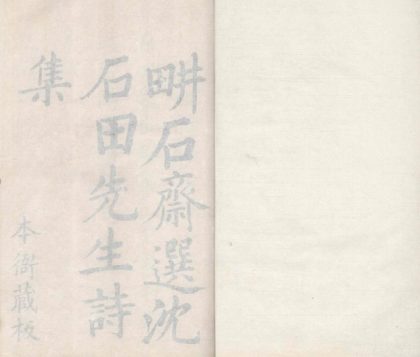 畊石齋選沈
石田先生詩
集
本衙藏板